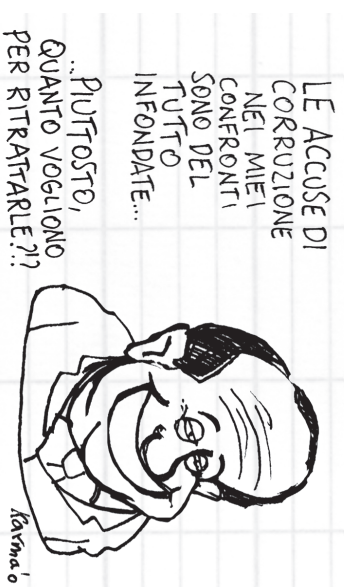 LE ACCUSE DI
CORRUZIONE
NEI MIEI
CONFRONTI
SONO DEL
TUTTO
INFONDATE...
...PIUTTOSTO,
QUANTO VOGLIONO
PER RITRATTARLE?!?
Karma'o